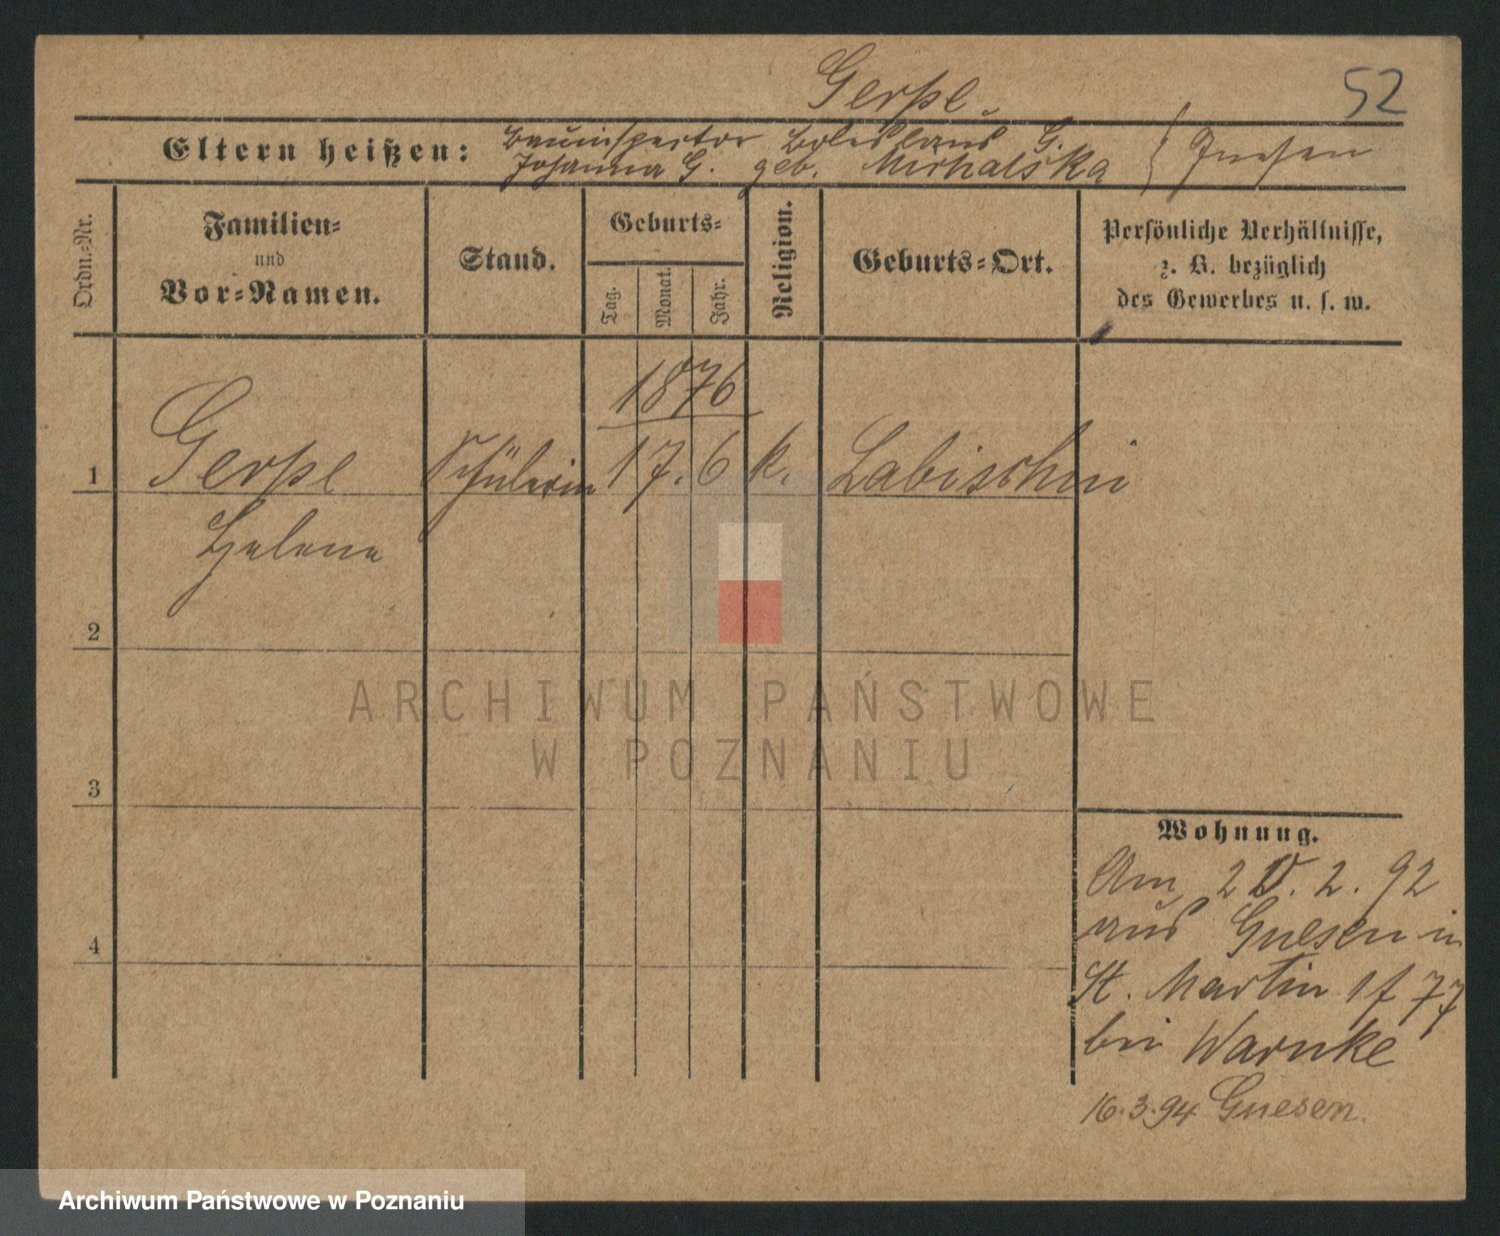 Gerpe.
52
Eltern heißen: Bauinspector Boleslaus G.
Johanna G. geb. Michalska } Gnesen
Ordn.-Nr.
Familien-
und
Vor-Namen.
Stand.
Geburts-
Tag.
Monat.
Jahr.
Religion.
Geburts-Ort.
Persönliche Verhältnisse,
z. B. bezüglich
des Gewerbes u. s. w.
1876
1 Gerpe Schülerin 17. 6 k. Labischin
Helene
2
3
4
Wohnung.
Am 20. 2. 92
aus Gnesen in
St. Martin 1f 77
bei Warnke
16.3.94 Gnesen.
ARCHIWUM PAŃSTWOWE
W POZNANIU
Archiwum Państwowe w Poznaniu